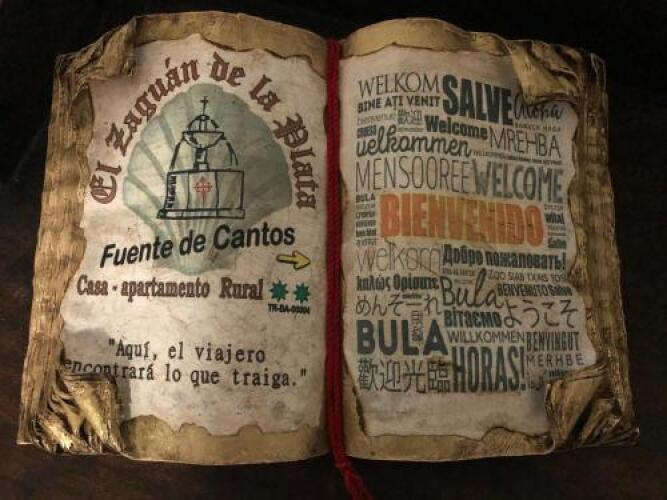 El Zaguán de la Plata
Fuente de Cantos
Casa - apartamento Rural
TR-BA-00004
"Aquí, el viajero
encontrará lo que traiga."
WELKOM
SALVE
Aloha
BINE AȚI VENIT
歓迎
Welcome
MREHBA
velkommen
MENSOOREE
WELCOME
BULA
BIENVENIDO
vital
Salve
welkom
Добро пожаловать!
καλώς Ορίσατε
Bula
BENVENUTO Salve
めんそーれ
Вітаємо
ようこそ
BULA
WILLKOMMEN
BENVINGUT
MERHBE
歡迎光臨
HORAS!